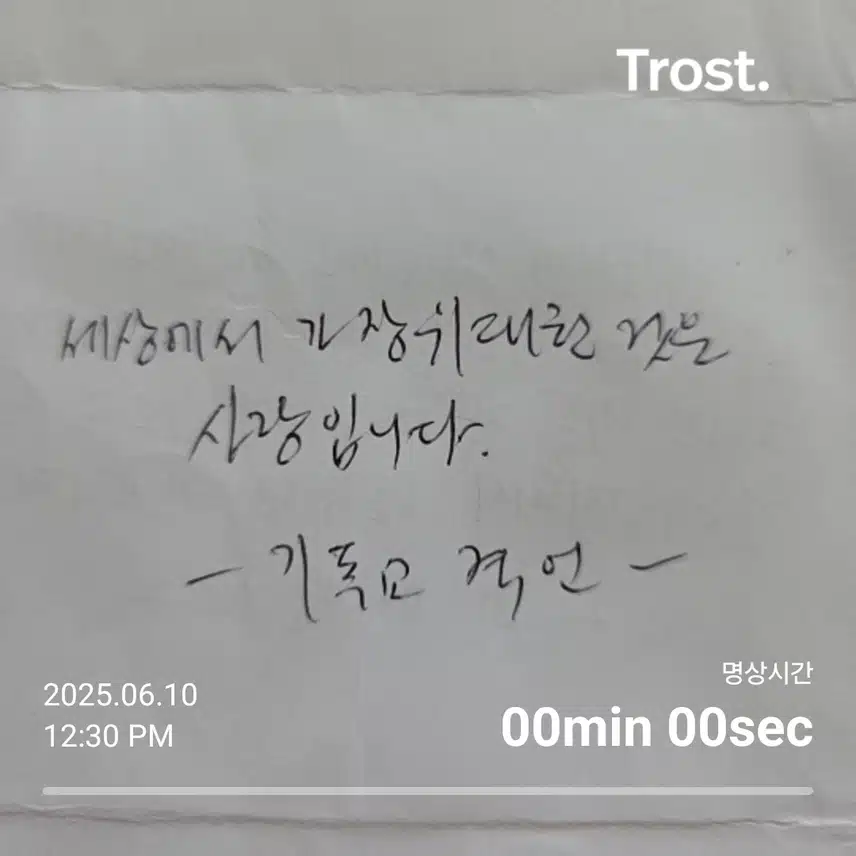 Trost.
세상에서 가장 위대한 것은
사랑입니다.
- 기독교 격언 -
명상시간
2025.06.10
00min 00sec
12:30 PM